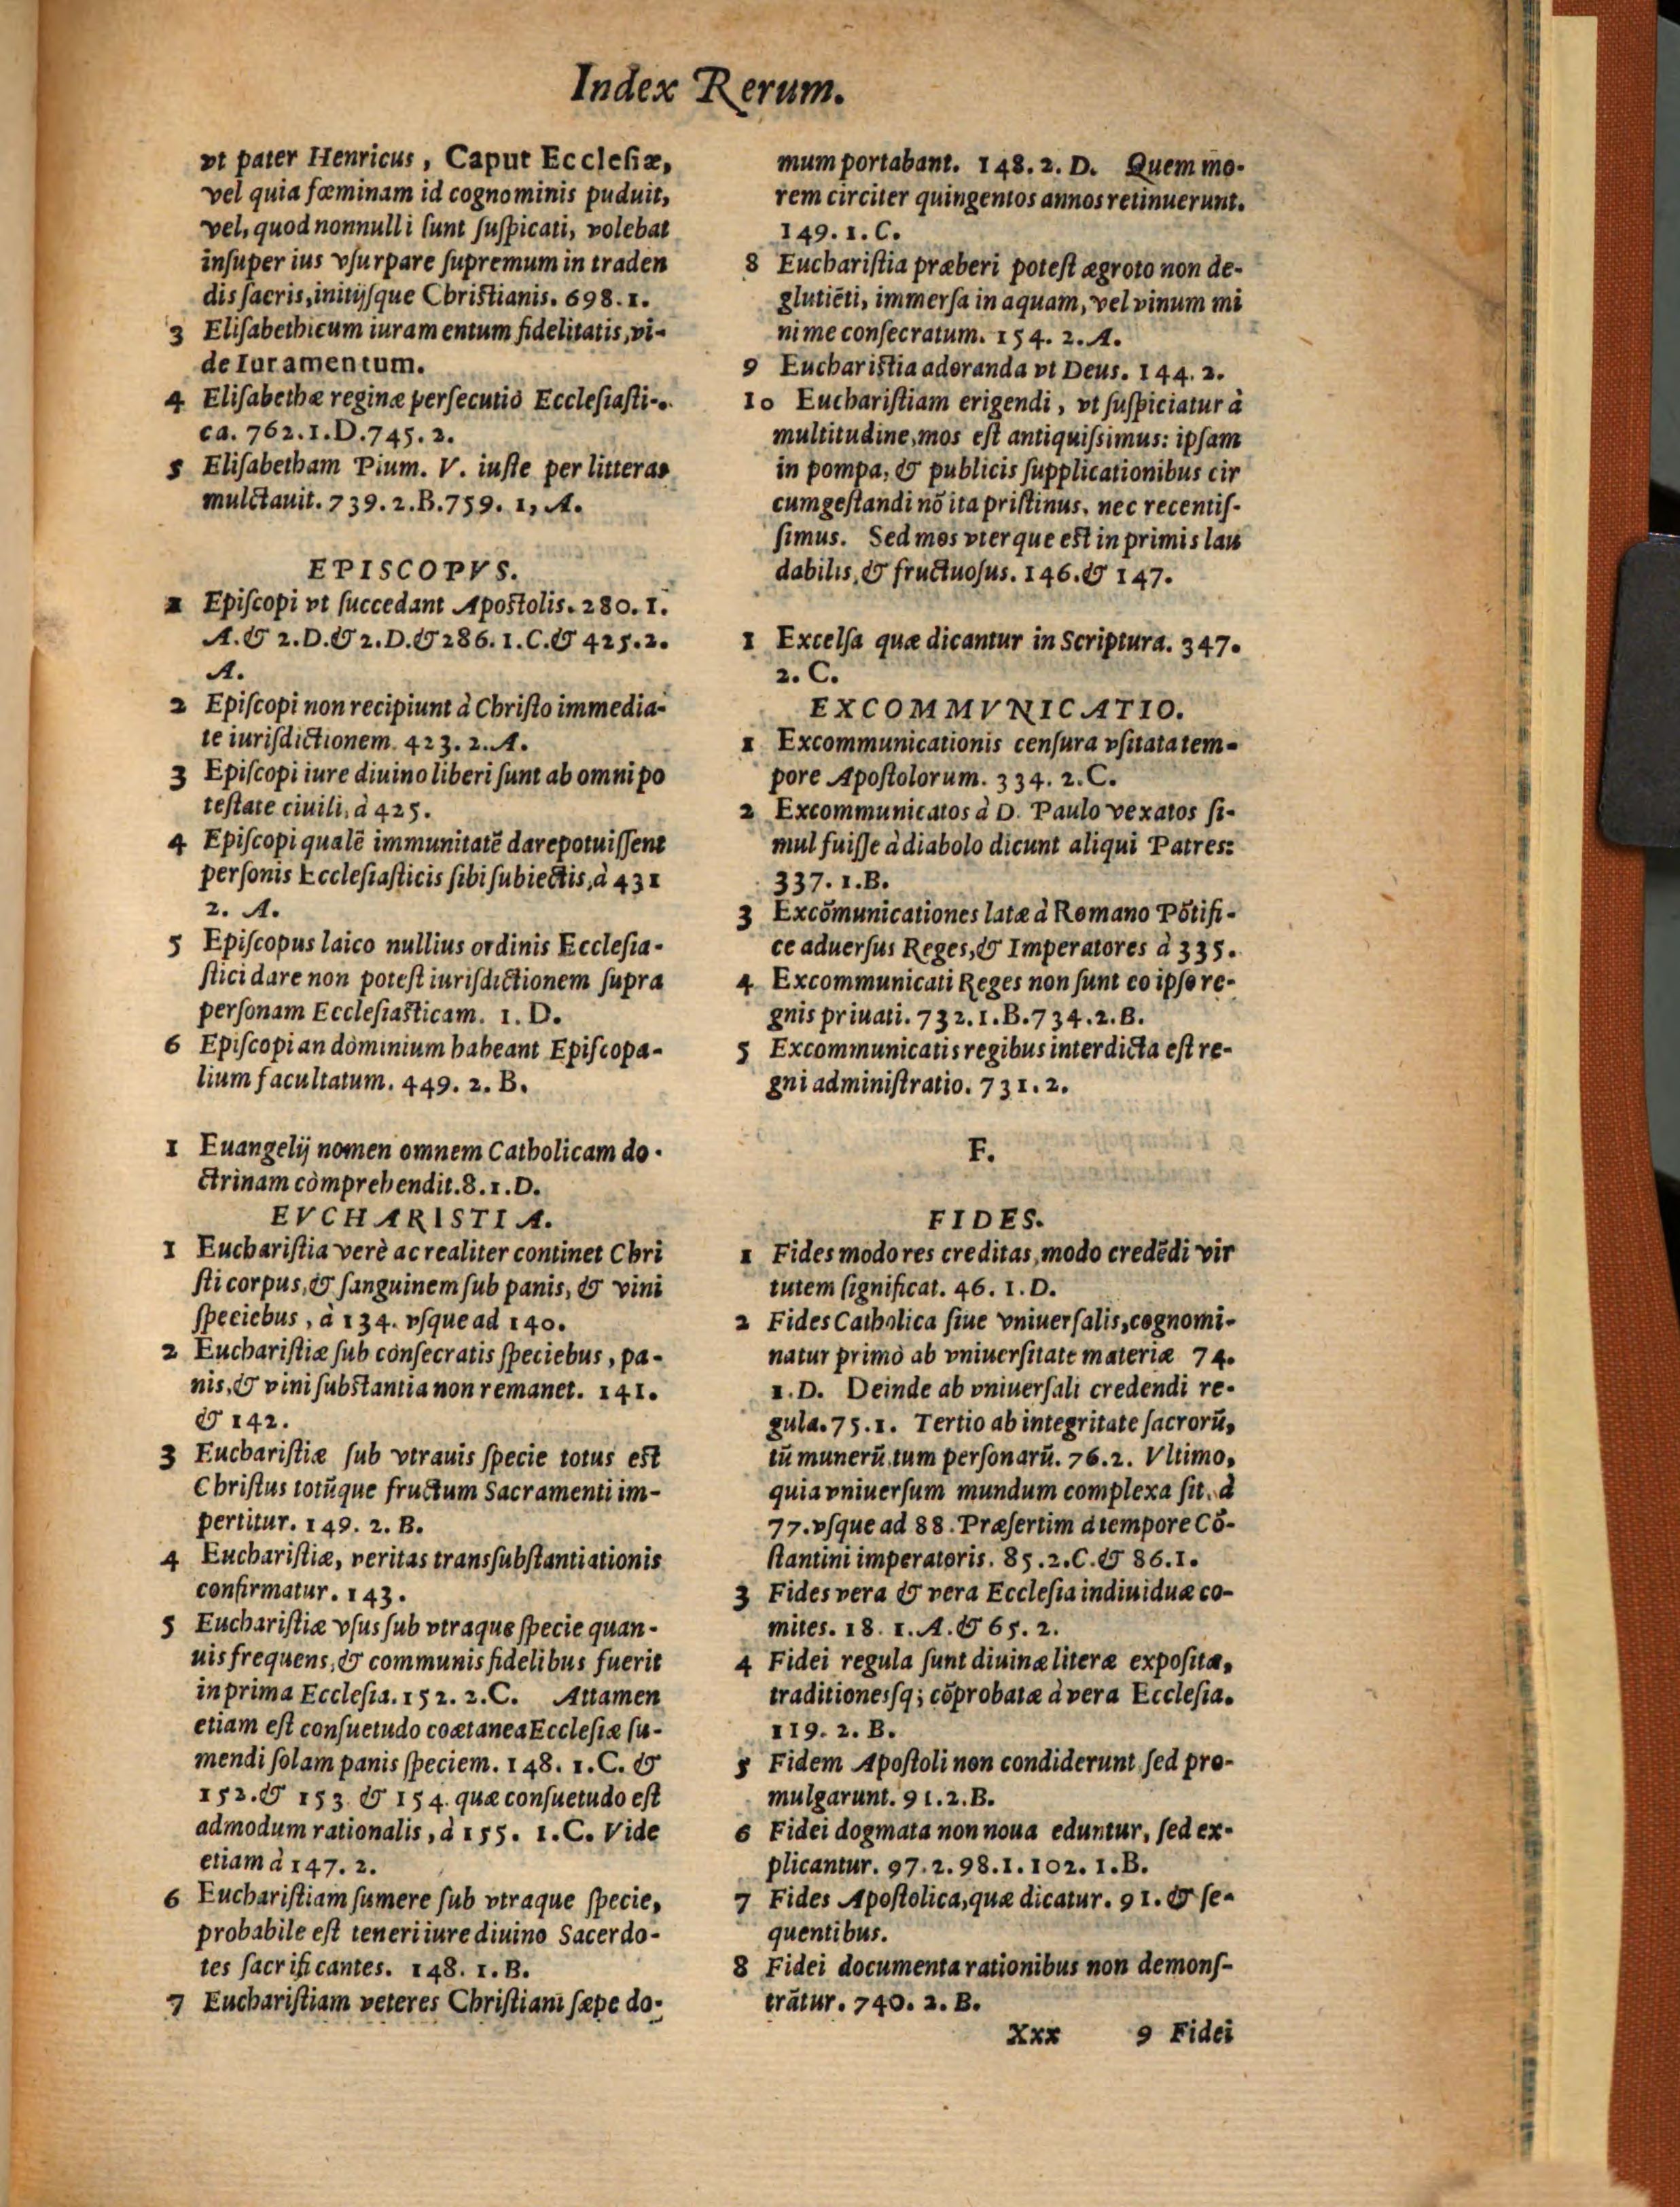 Index Rerum.
vt pater Henricus, Caput Ecclesiæ,
vel quia fœminam id cognominis puduit,
vel, quod nonnulli sunt suspicati, volebat
insuper ius vsurpare supremum in traden
dis sacris, initijsque Christianis. 698. 1.
3 Elisabethicum iuramentum fidelitatis, vi-
de Iuramentum.
4 Elisabethæ reginæ persecutiò Ecclesiasti-
ca. 762. 1. D. 745. 2.
5 Elisabetham Pium. V. iuste per litteras
mulctauit. 739. 2. B. 759. 1, A.
EPISCOPVS.
1 Episcopi vt succedant Apostolis. 280. 1.
A. & 2. D. & 2. D. & 286. 1. C. & 425. 2.
A.
2 Episcopi non recipiunt à Christo immedia-
te iurisdictionem. 423. 2. A.
3 Episcopi iure diuino liberi sunt ab omni po
testate ciuili, à 425.
4 Episcopi qualẽ immunitatẽ dare potuissent
personis Ecclesiasticis sibi subiectis, à 431
2. A.
5 Episcopus laico nullius ordinis Ecclesia-
stici dare non potest iurisdictionem supra
personam Ecclesiasticam. 1. D.
6 Episcopi an dominium habeant Episcopa-
lium facultatum. 449. 2. B.
1 Euangelij nomen omnem Catholicam do-
ctrinam còmprehendit. 8. 1. D.
EVCHARISTIA.
1 Eucharistia verè ac realiter continet Chri
sti corpus, & sanguinem sub panis, & vini
speciebus, à 134. vsque ad 140.
2 Eucharistiæ sub consecratis speciebus, pa-
nis, & vini substantia non remanet. 141.
& 142.
3 Eucharistiæ sub vtrauis specie totus est
Christus totũque fructum Sacramenti im-
pertitur. 149. 2. B.
4 Eucharistiæ, veritas transsubstantiationis
confirmatur. 143.
5 Eucharistiæ vsus sub vtraque specie quan-
uis frequens, & communis fidelibus fuerit
in prima Ecclesia. 152. 2. C. Attamen
etiam est consuetudo coætanea Ecclesiæ su-
mendi solam panis speciem. 148. 1. C. &
152. & 153. & 154. quæ consuetudo est
admodum rationalis, à 155. 1. C. Vide
etiam à 147. 2.
6 Eucharistiam sumere sub vtraque specie,
probabile est teneri iure diuino Sacerdo-
tes sacrificantes. 148. 1. B.
7 Eucharistiam veteres Christiani sæpe do-
mum portabant. 148. 2. D. Quem mo-
rem circiter quingentos annos retinuerunt.
149. 1. C.
8 Eucharistia præberi potest ægroto non de-
glutiẽti, immersa in aquam, vel vinum mi
nime consecratum. 154. 2. A.
9 Eucharistia adoranda vt Deus. 144. 2.
10 Eucharistiam erigendi, vt suspiciatur à
multitudine, mos est antiquissimus: ipsam
in pompa, & publicis supplicationibus cir
cumgestandi nõ ita pristinus, nec recentis-
simus. Sed mos vterque est in primis lau
dabilis, & fructuosus. 146. & 147.
1 Excelsa quæ dicantur in Scriptura. 347.
2. C.
EXCOMMVNICATIO.
1 Excommunicationis censura vsitata tem-
pore Apostolorum. 334. 2. C.
2 Excommunicatos à D. Paulo vexatos si-
mul fuisse à diabolo dicunt aliqui Patres:
337. 1. B.
3 Excõmunicationes latæ à Romano Põtifi-
ce aduersus Reges, & Imperatores à 335.
4 Excommunicati Reges non sunt eo ipso re-
gnis priuati. 732. 1. B. 734. 2. B.
5 Excommunicatis regibus interdicta est re-
gni administratio. 731. 2.
F.
FIDES.
1 Fides modo res creditas, modo credẽdi vir
tutem significat. 46. 1. D.
2 Fides Catholica siue vniuersalis, cognomi-
natur primò ab vniuersitate materiæ 74.
1. D. Deinde ab vniuersali credendi re-
gula. 75. 1. Tertio ab integritate sacrorũ,
tũ munerũ, tum personarũ. 76. 2. Vltimo,
quia vniuersum mundum complexa sit, à
77. vsque ad 88. Præsertim à tempore Cõ-
stantini imperatoris. 85. 2. C. & 86. 1.
3 Fides vera & vera Ecclesia indiuiduæ co-
mites. 18. 1. A. & 65. 2.
4 Fidei regula sunt diuinæ literæ expositæ,
traditionessq; cõprobatæ à vera Ecclesia.
119. 2. B.
5 Fidem Apostoli non condiderunt sed pro-
mulgarunt. 91. 2. B.
6 Fidei dogmata non noua eduntur, sed ex-
plicantur. 97. 2. 98. 1. 102. 1. B.
7 Fides Apostolica, quæ dicatur. 91. & se-
quentibus.
8 Fidei documenta rationibus non demons-
trãtur. 740. 2. B.
Xxx 9 Fidei